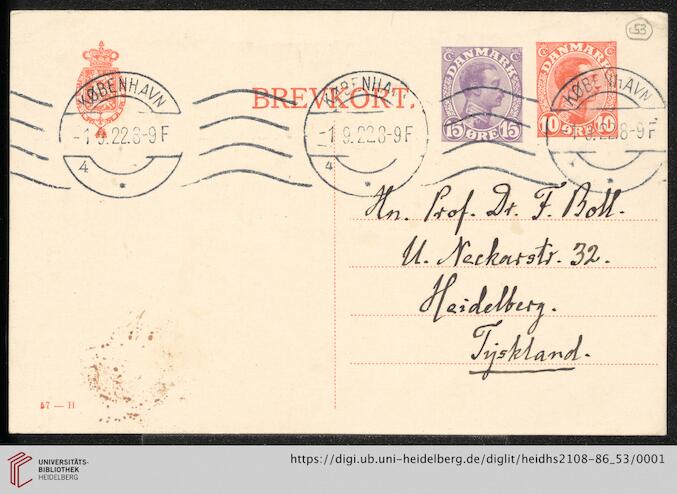 53
BREVKORT.
DANMARK
15 ØRE 15
DANMARK
10 ØRE 10
KØBENHAVN
-1.9.22.8-9F
4
*
KØBENHAVN
-1.9.22.8-9F
4
*
KØBENHAVN
-1.9.22.8-9F
*
Hn. Prof. Dr. F. Boll.
U. Neckarstr. 32.
Heidelberg.
Tÿskland.
57 — H
UNIVERSITÄTS-
BIBLIOTHEK
HEIDELBERG
https://digi.ub.uni-heidelberg.de/diglit/heidhs2108-86_53/0001